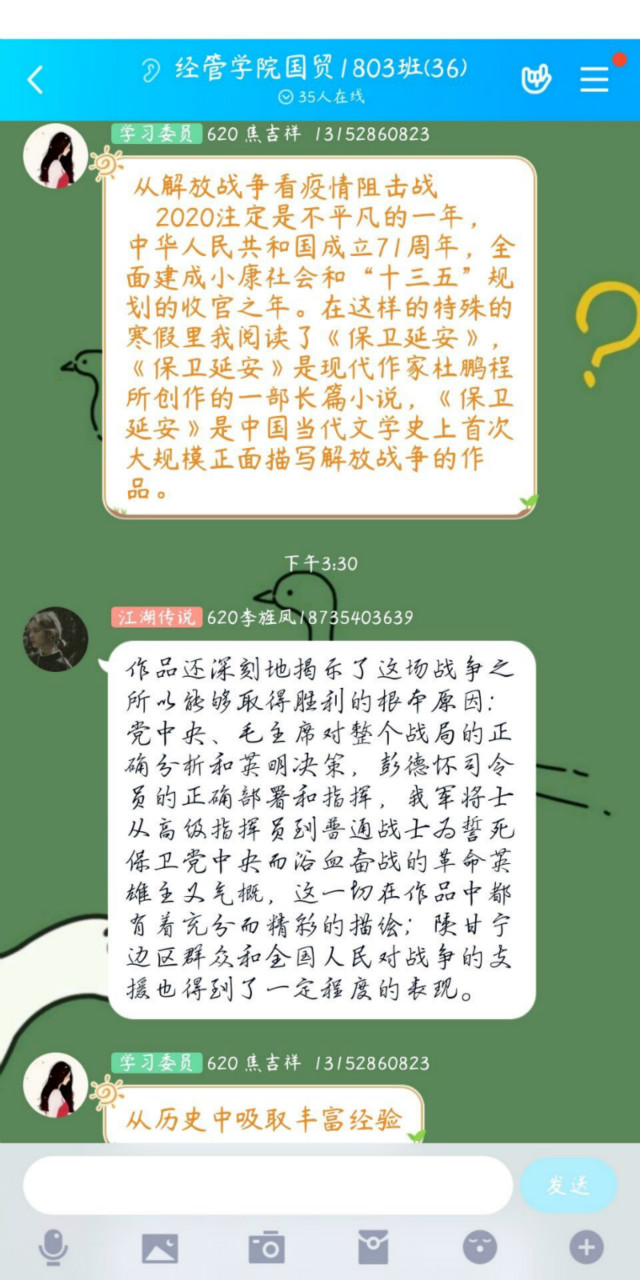 经管学院国贸1803班(36)
35人在线
学习委员 620 焦吉祥 13152860823
从解放战争看疫情阻击战
2020注定是不平凡的一年，
中华人民共和国成立71周年，全
面建成小康社会和“十三五”规
划的收官之年。在这样的特殊的
寒假里我阅读了《保卫延安》，
《保卫延安》是现代作家杜鹏程
所创作的一部长篇小说，《保卫
延安》是中国当代文学史上首次
大规模正面描写解放战争的作
品。
下午3:30
江湖传说 620李旌凤18735403639
作品还深刻地揭示了这场战争之
所以能够取得胜利的根本原因：
党中央、毛主席对整个战局的正
确分析和英明决策，彭德怀司令
员的正确部署和指挥，我军将士
从高级指挥员到普通战士为誓死
保卫党中央而浴血奋战的革命英
雄主义气概，这一切在作品中都
有着充分而精彩的描绘；陕甘宁
边区群众和全国人民对战争的支
援也得到了一定程度的表现。
学习委员 620 焦吉祥 13152860823
从历史中吸取丰富经验
发送